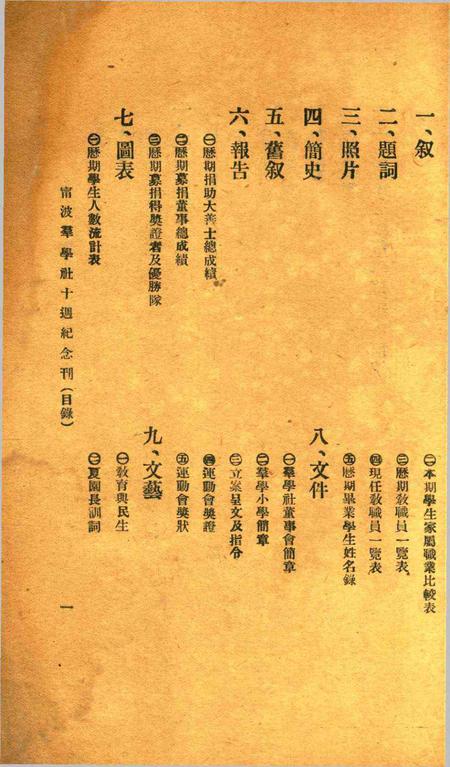 一、叙
二、題詞
三、照片
四、簡史
五、舊叙
六、報告
㊀歷期捐助大善士總成績
㊁歷期募捐董事總成績
㊂歷期募捐得獎證者及優勝隊
七、圖表
㊀歷期學生人數統計表
㊁本期學生家屬職業比較表
㊂歷期敎職員一覽表
㊃現任敎職員一覽表
㊄歷期畢業學生姓名錄
八、文件
㊀羣學社董事會簡章
㊁羣學小學簡章
㊂立案呈文及指令
㊃運動會獎證
㊄運動會獎狀
九、文藝
㊀敎育與民生
㊁夏園長訓詞
甯波羣學社十週紀念刊(目錄)
一